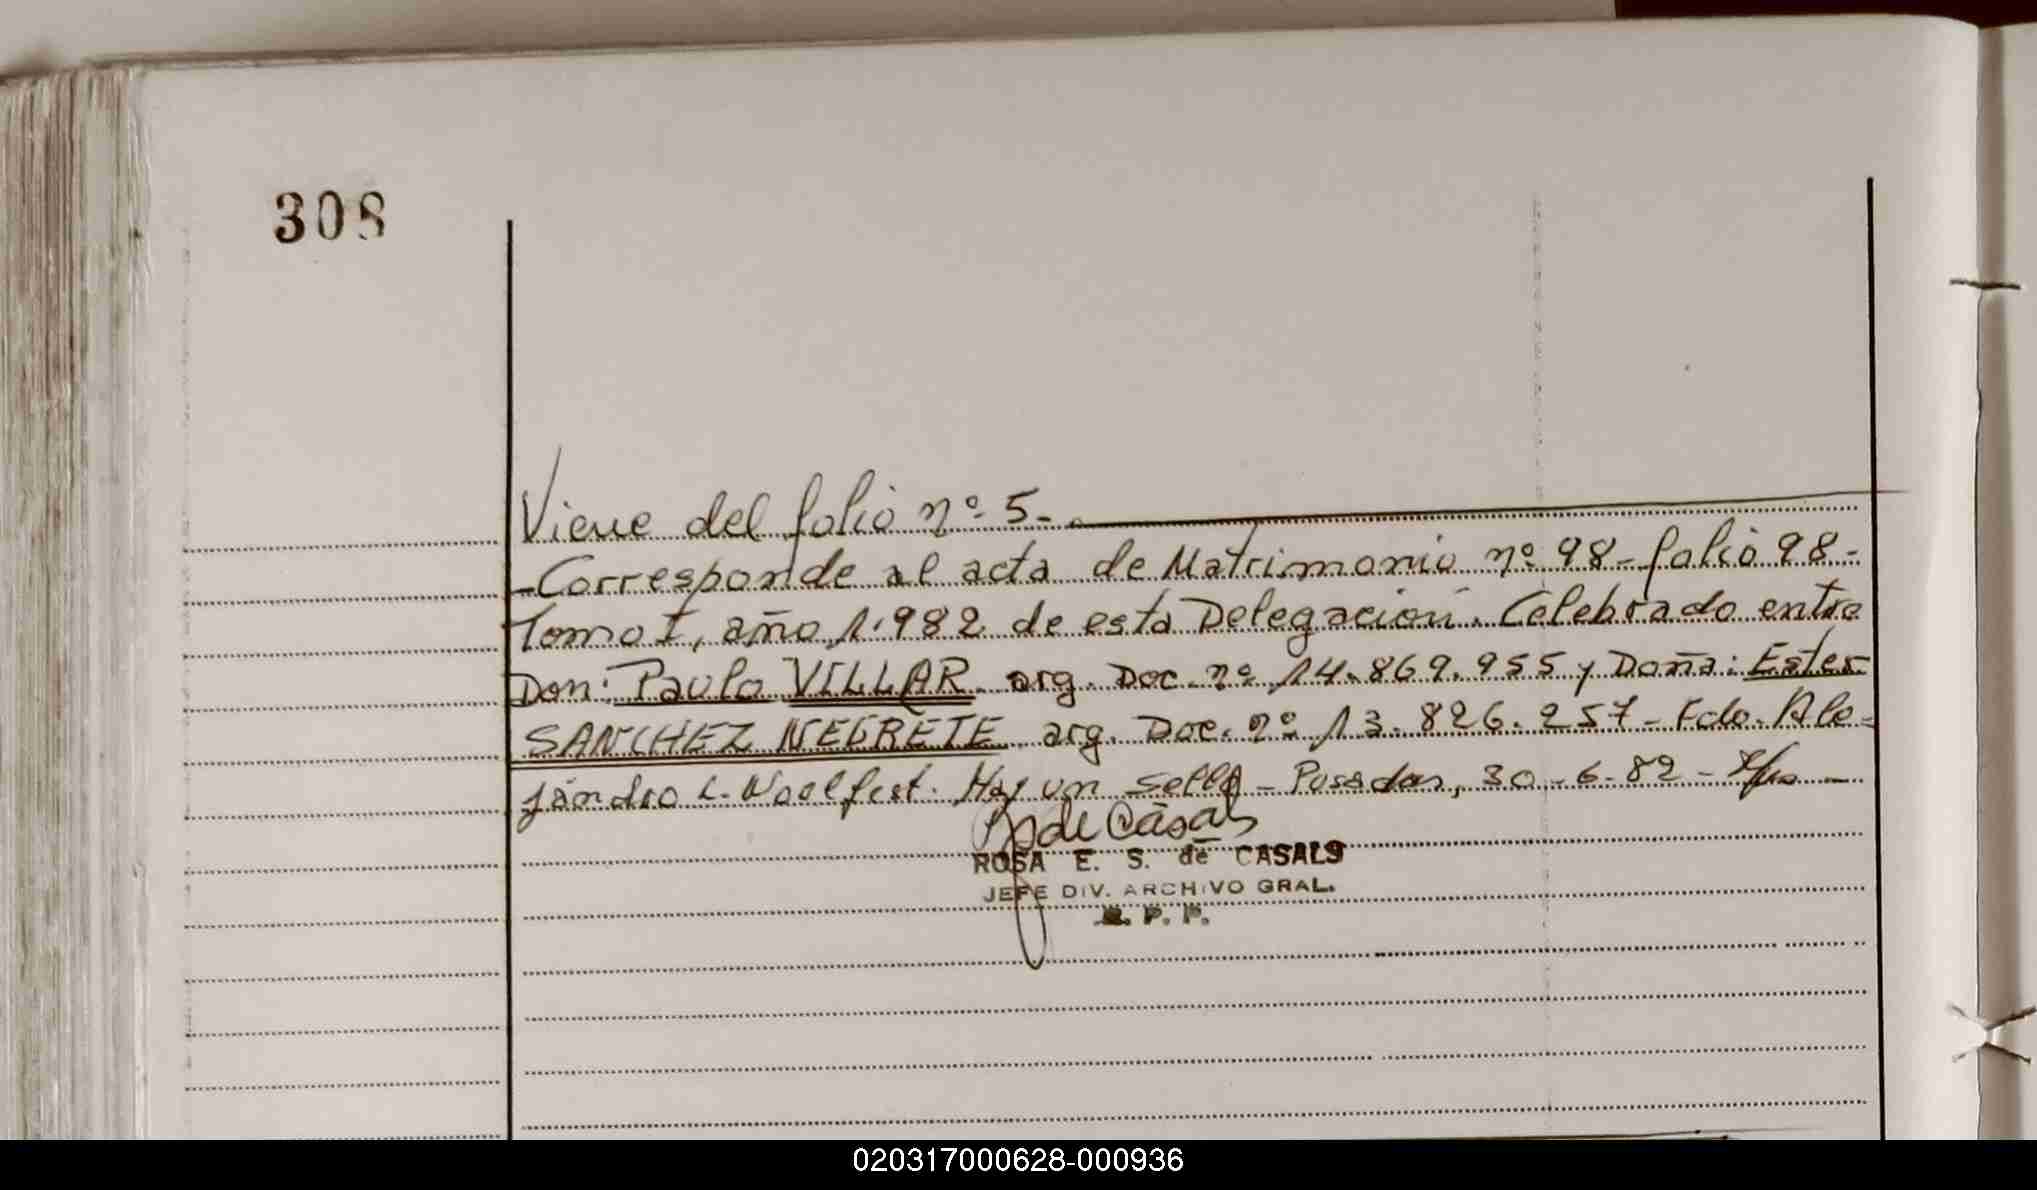 308
Viene del folio nº 5-
-Corresponde al acta de Matrimonio nº 98- folio 98-
Tomo I, año 1.982 de esta Delegación. Celebrado entre
Don: Paulo VILLAR. arg. Doc. nº 14.869.955 y Doña: Ester
SANCHEZ NEGRETE arg. Doc. nº 13.826.257- Fdo. Ale-
jandro L. Hay un sello - Posadas, 30-6-82-
R de Casals
ROSA E. S. de CASALS
JEFE DIV. ARCHIVO GRAL.
R. P. P.
020317000628-000936